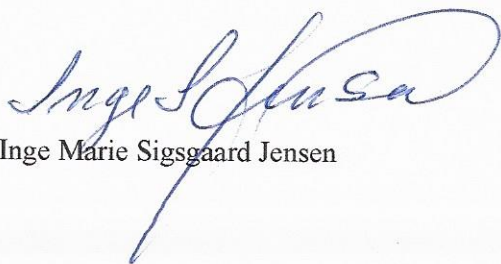 Inge S Jensen
Inge Marie Sigsgaard Jensen